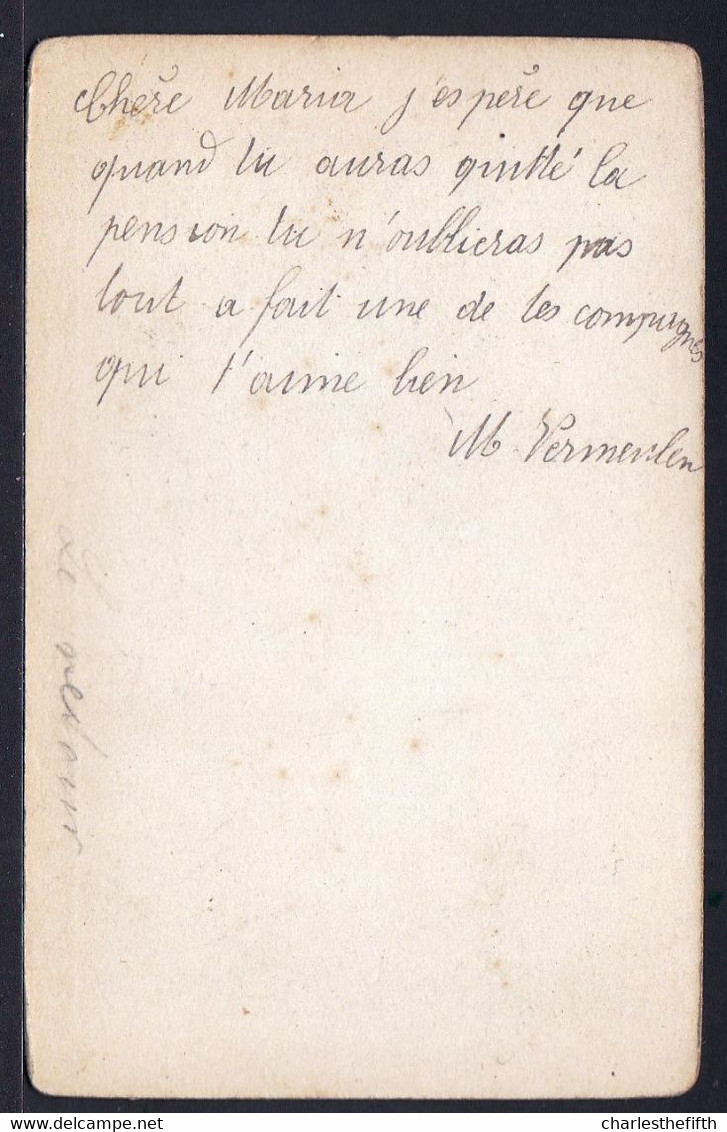 Chère Maria j'espère que
quand tu auras quitté la
pension tu n'oublieras pas
tout a fait une de tes compagnes
qui t'aime bien
M Vermeulen
charlesthefifth